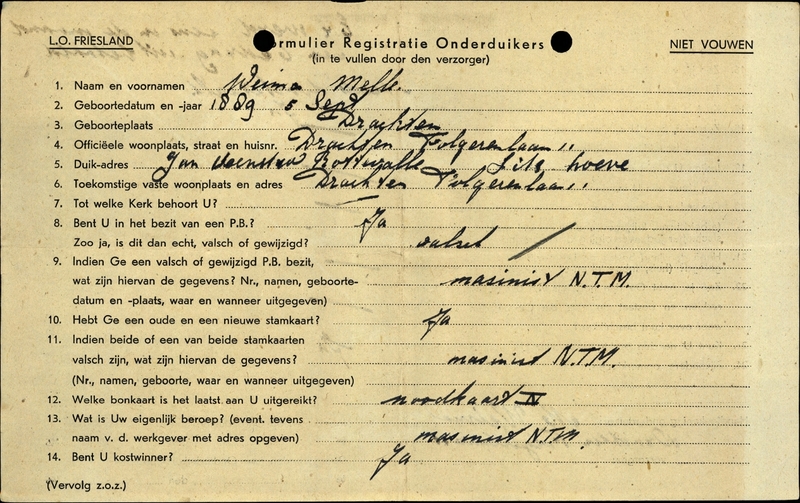 L.O. FRIESLAND
Formulier Registratie Onderduikers
NIET VOUWEN
(in te vullen door den verzorger)
1. Naam en voornamen Weima Melle.
2. Geboortedatum en -jaar 1889 5 Sept
3. Geboorteplaats Drachten
4. Officiëele woonplaats, straat en huisnr. Drachten Folgerenlaan 11
5. Duik-adres Jan Veenstra Rottevalle hoeve
6. Toekomstige vaste woonplaats en adres Drachten Folgerenlaan 11
7. Tot welke Kerk behoort U? —
8. Bent U in het bezit van een P.B.? Ja
Zoo ja, is dit dan echt, valsch of gewijzigd? valsch
9. Indien Ge een valsch of gewijzigd P.B. bezit,
wat zijn hiervan de gegevens? Nr., namen, geboorte- masinist N.T.M.
datum en -plaats, waar en wanneer uitgegeven)
10. Hebt Ge een oude en een nieuwe stamkaart? Ja
11. Indien beide of een van beide stamkaarten
valsch zijn, wat zijn hiervan de gegevens? masinist N.T.M.
(Nr., namen, geboorte, waar en wanneer uitgegeven)
12. Welke bonkaart is het laatst aan U uitgereikt? noodkaart IV
13. Wat is Uw eigenlijk beroep? (event. tevens
naam v. d. werkgever met adres opgeven) masinist N.T.M.
14. Bent U kostwinner? Ja
(Vervolg z.o.z.)